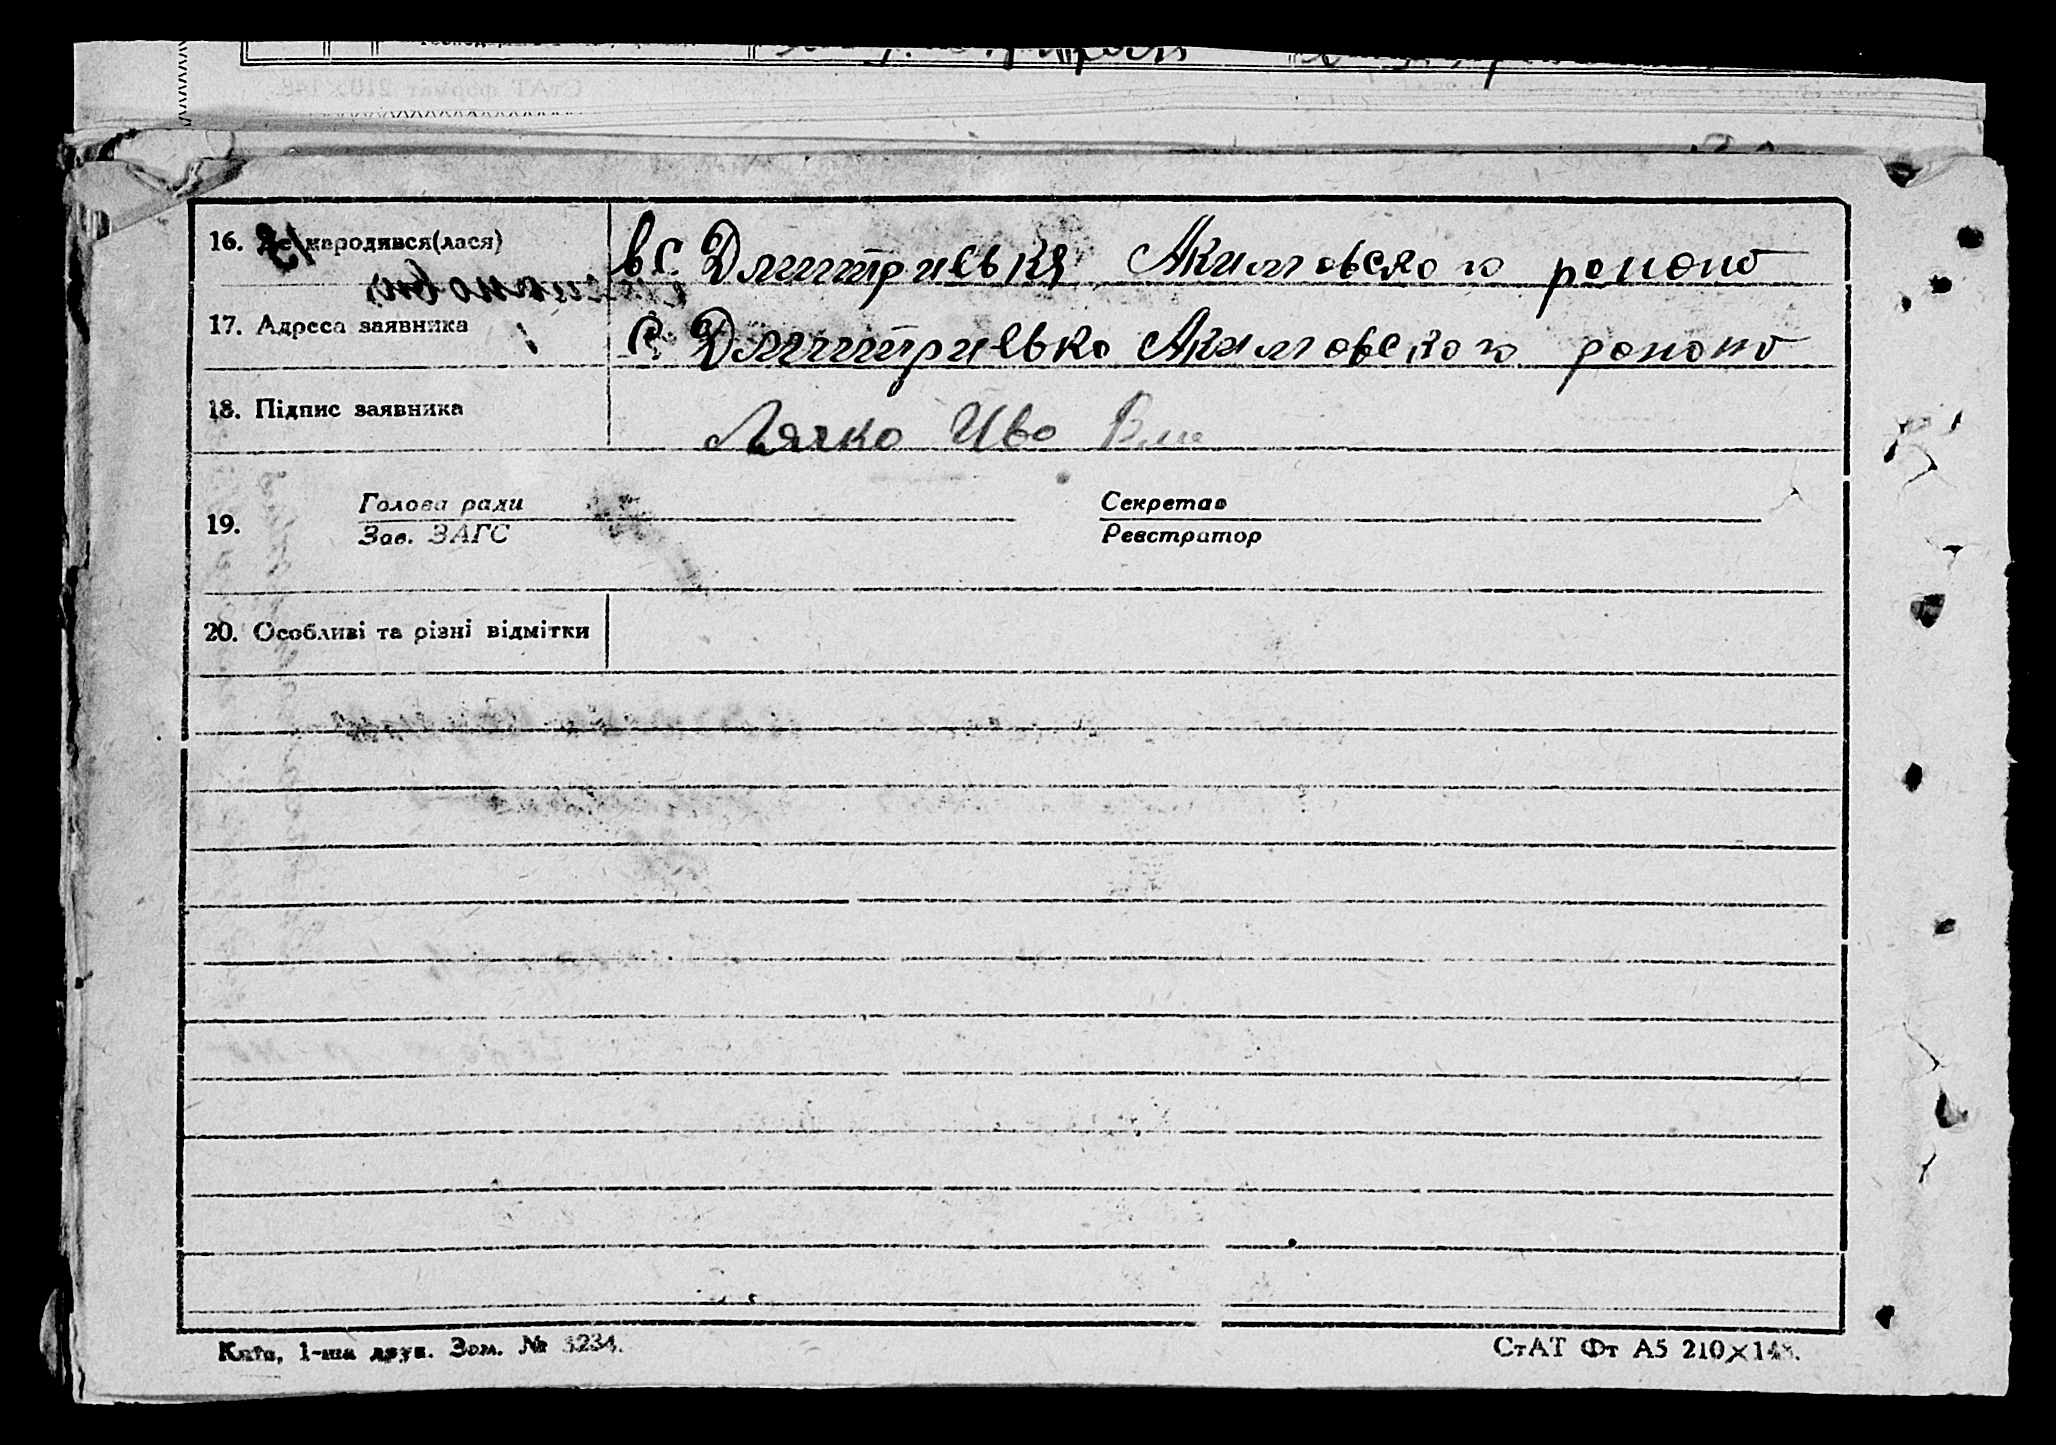 16. Де народився(лася) в с. Дмитриевкя Акимовского ройоно
17. Адреса заявника с. Дмитриевко Акимовского ройоно
18. Підпис заявника Лялко Иво
19. Голова ради Секретар
Зав. ЗАГС Реєстратор
20. Особливі та різні відмітки
Київ, 1-ша друк. Зам. № 3234. СтАТ Фт А5 210×148.